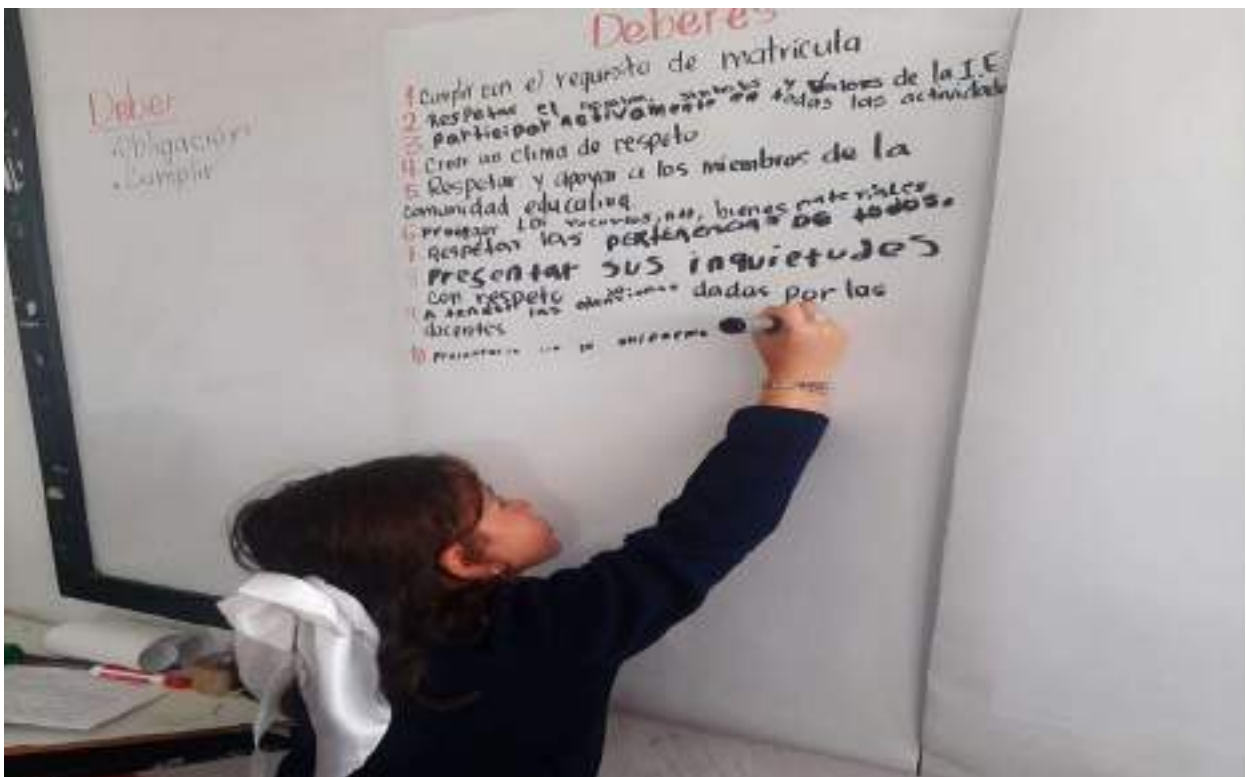 Deber
• Obligación
• Cumplir
Deberes
1 Cumplir con el requisito de matricula
2 Respetar el nombre, símbolos y Valores de la I.E
3 participar activamente en todas las actividade
4 Crear un clima de respeto
5 Respetar y apoyar a los miembros de la
comunidad educativa
6 Proteger los recursos, bienes materiales
7 Respetar las pertenencias DE todos.
Presentar sus inquietudes
con respeto
Atender las dadas por las
docentes
10 uniforme